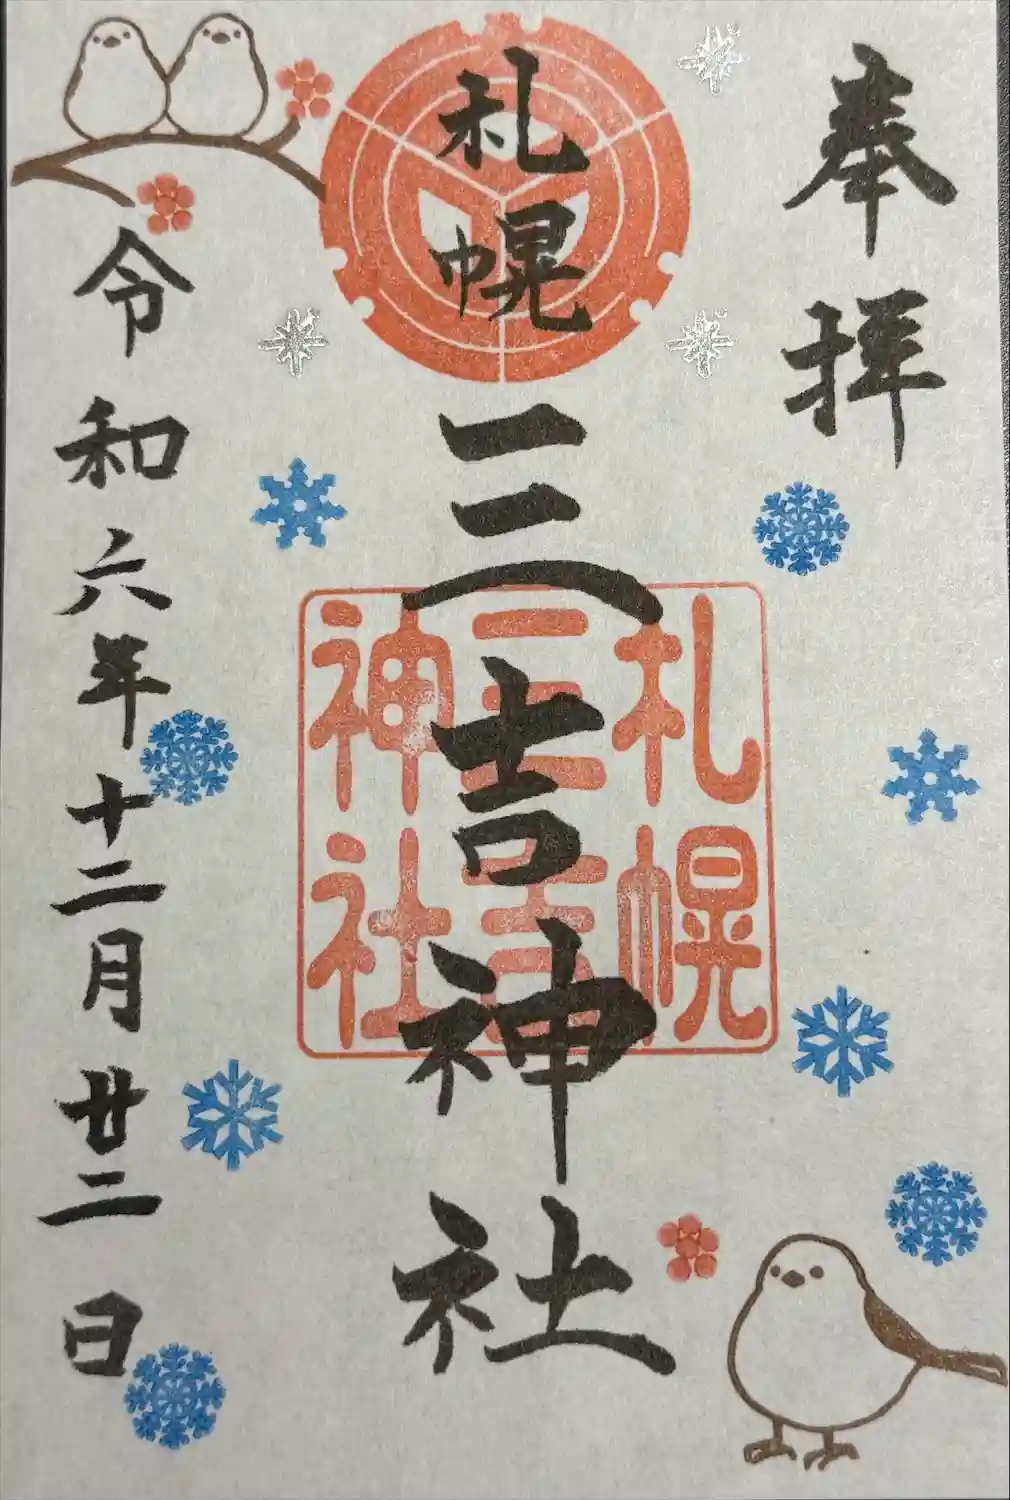 奉拝
札幌
三吉神社
札幌
三吉
神社
令和六年十二月廿二日